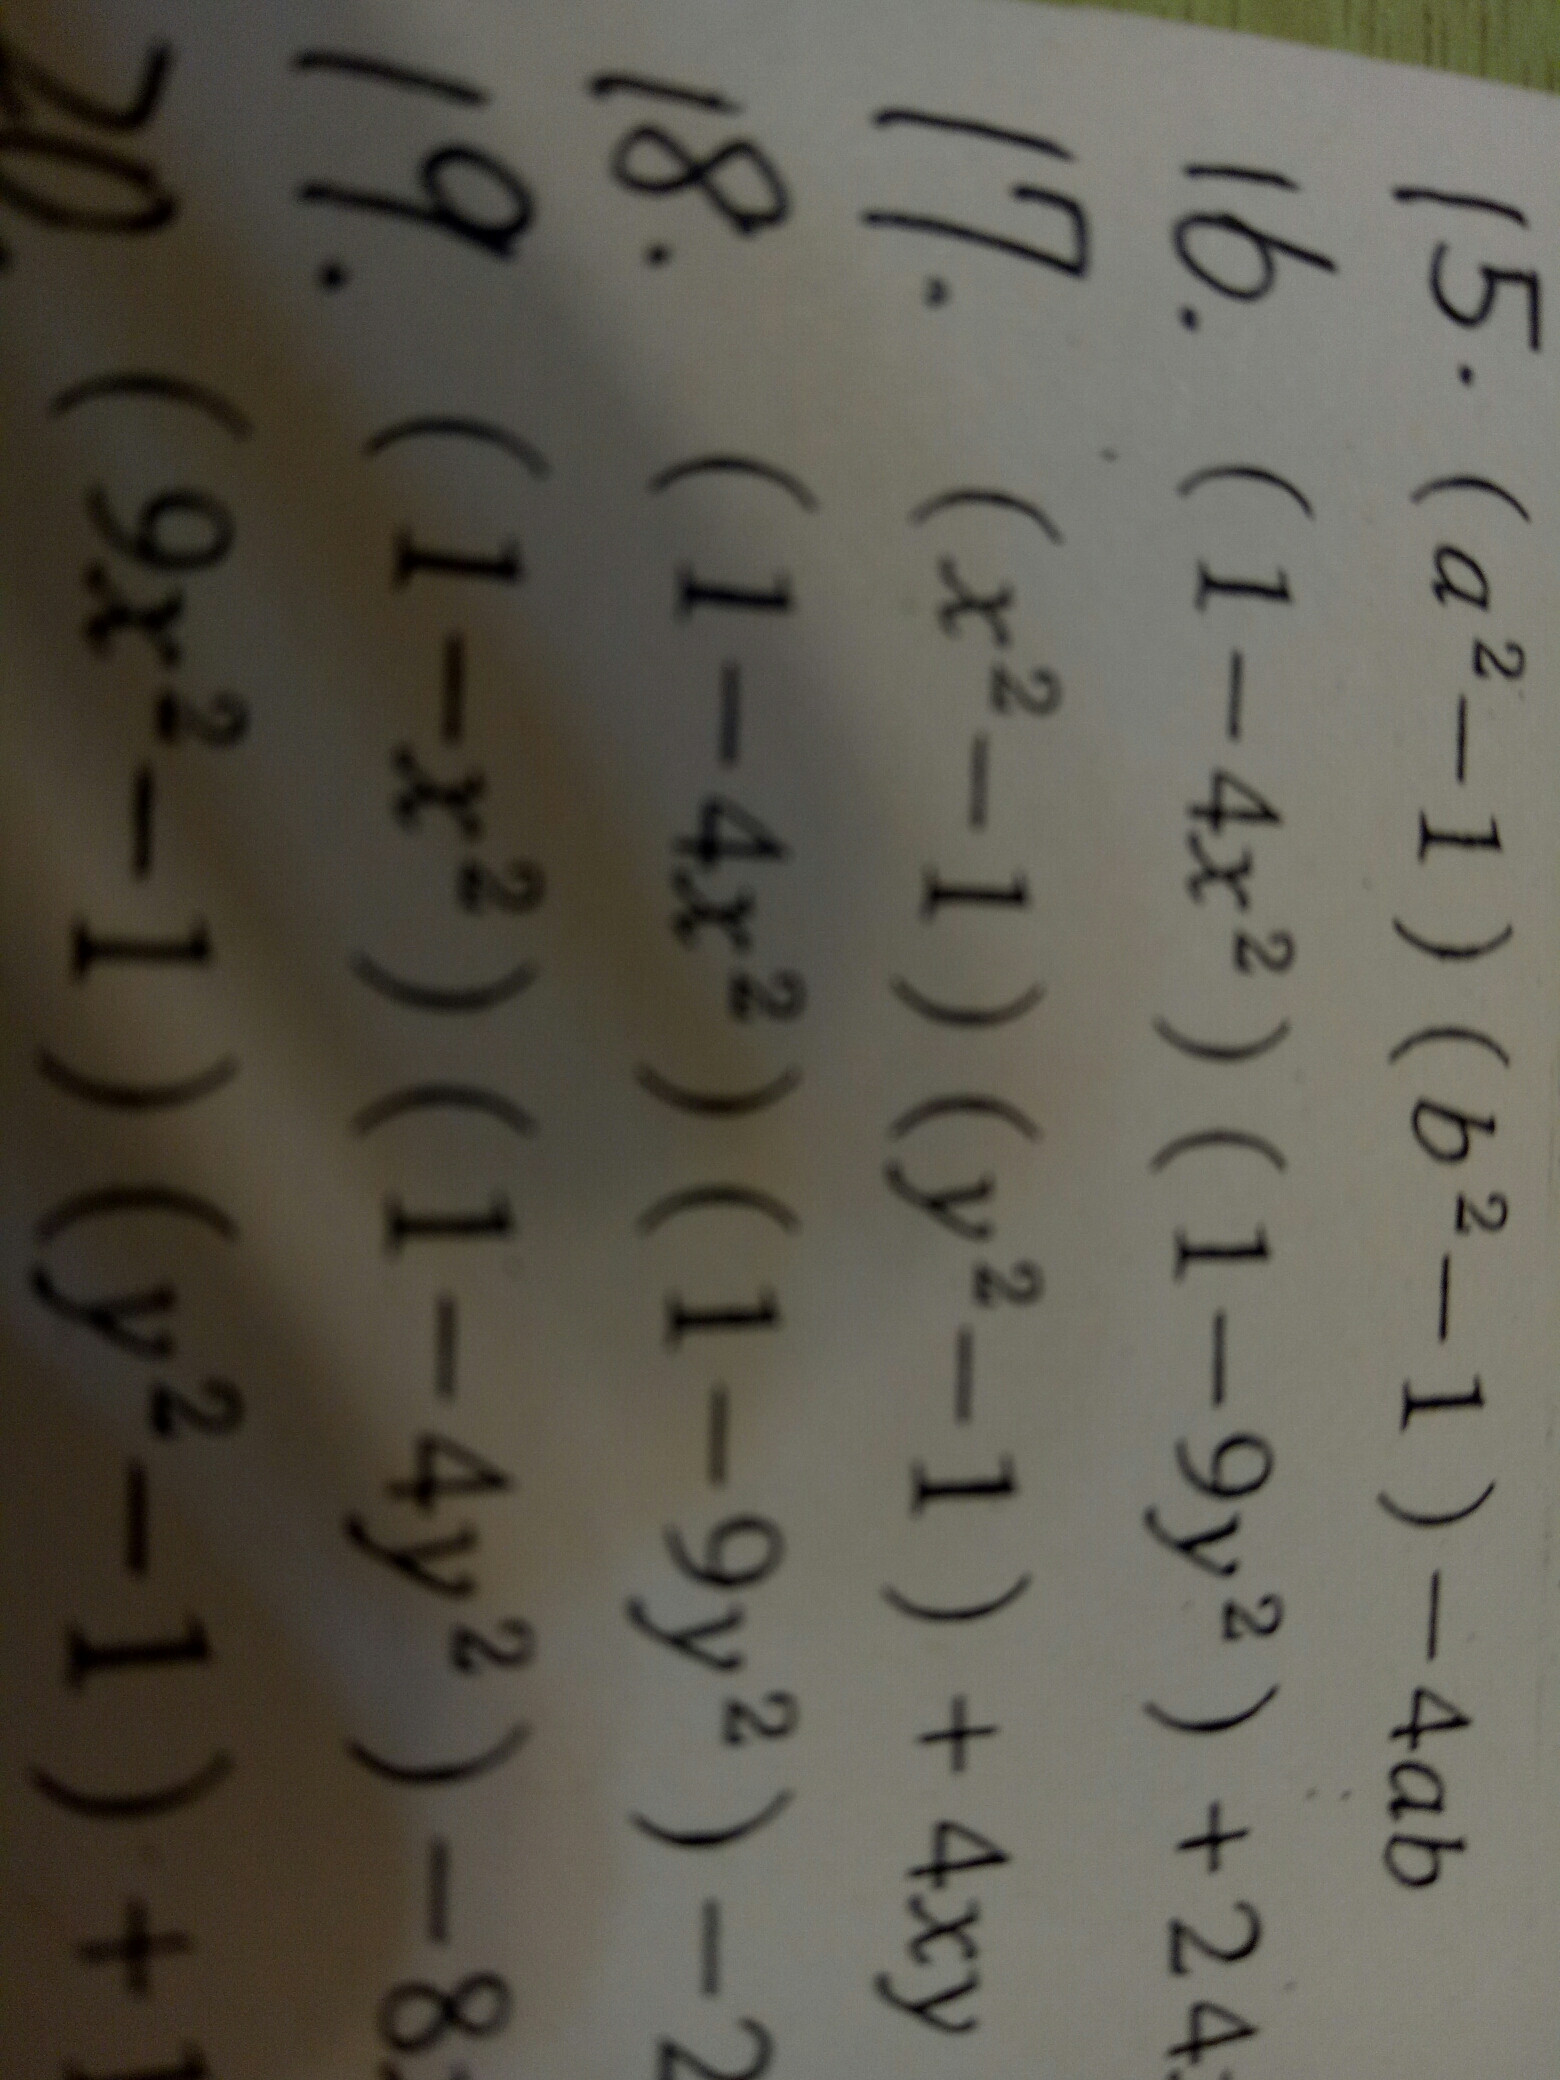 15. (a²-1)(b²-1)-4ab
16. (1-4x²)(1-9y²)+24
17. (x²-1)(y²-1)+4xy
18. (1-4x²)(1-9y²)-2
19. (1-x²)(1-4y²)-8
20. (9x²-1)(y²-1)+1